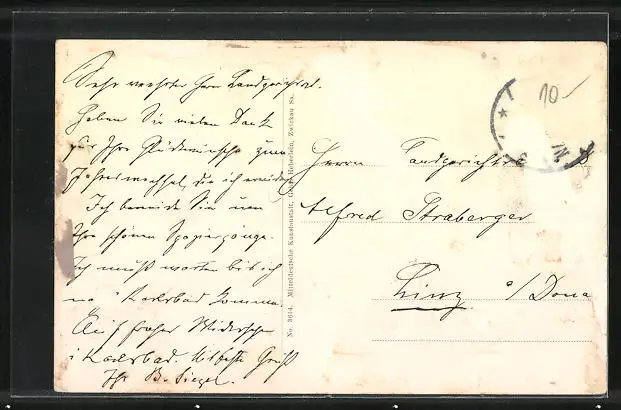 Sehr verehrter Herr Landgerichtsrat.
Haben Sie vielen Dank
für Ihre Glückwünsche zum
Jahreswechsel, die ich erwidere.
Ich beneide Sie um
Ihre schönen Spaziergänge.
Ich muß warten bis ich
Karlsbad komme.
Auf frohes Wiedersehn
i Karlsbad. Mit besten Gruß
Ihr B. Siegel.
No. 3614. Mitteldeutsche Kunstanstalt, Georg Heberlein, Zwickau Sa.
10-
Herrn Landgerichtsrat
Alfred Straberger
Linz a/Dona